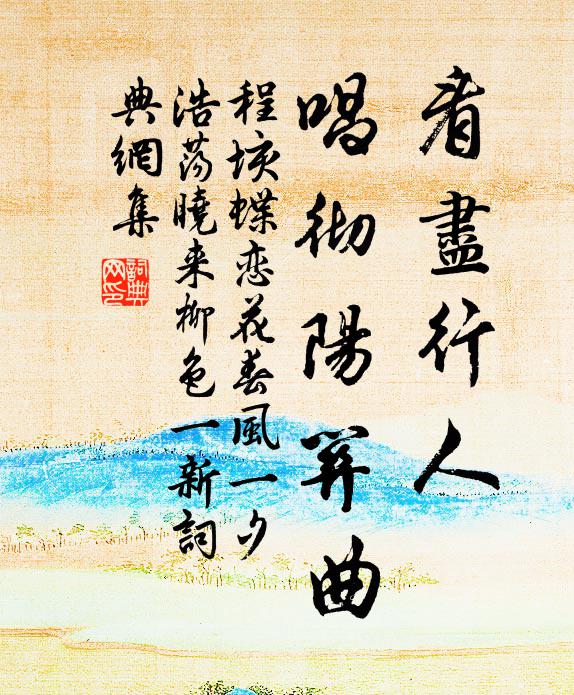 看盡行人
唱彻陽関曲
程垓蝶恋花春風一夕
浩蕩曉来柳色一新詞
典網集
詞典
网印